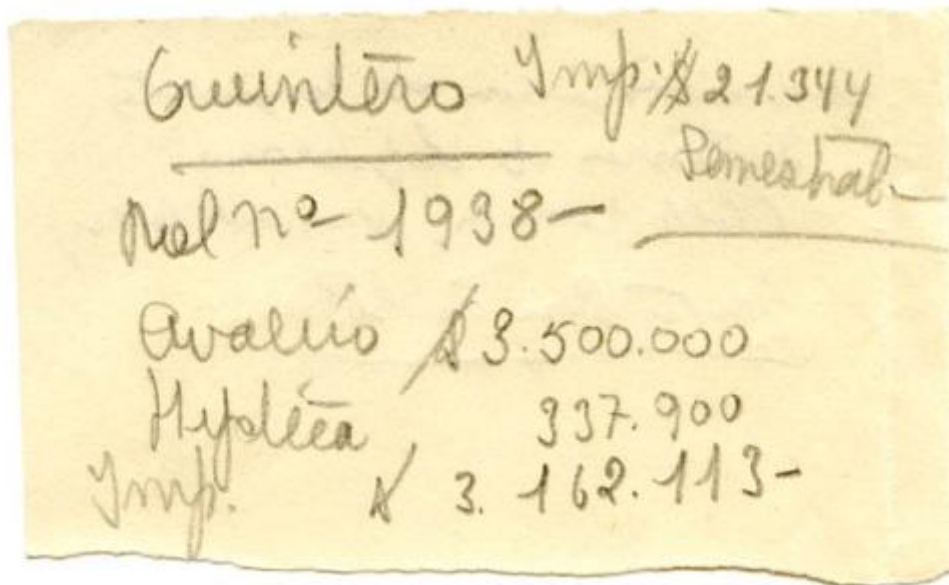 Quintero Imp. $21.344
Semestral
Rol Nº 1938-
Avalúo $3.500.000
Hypoteca 337.900
Imp. $ 3.162.113-